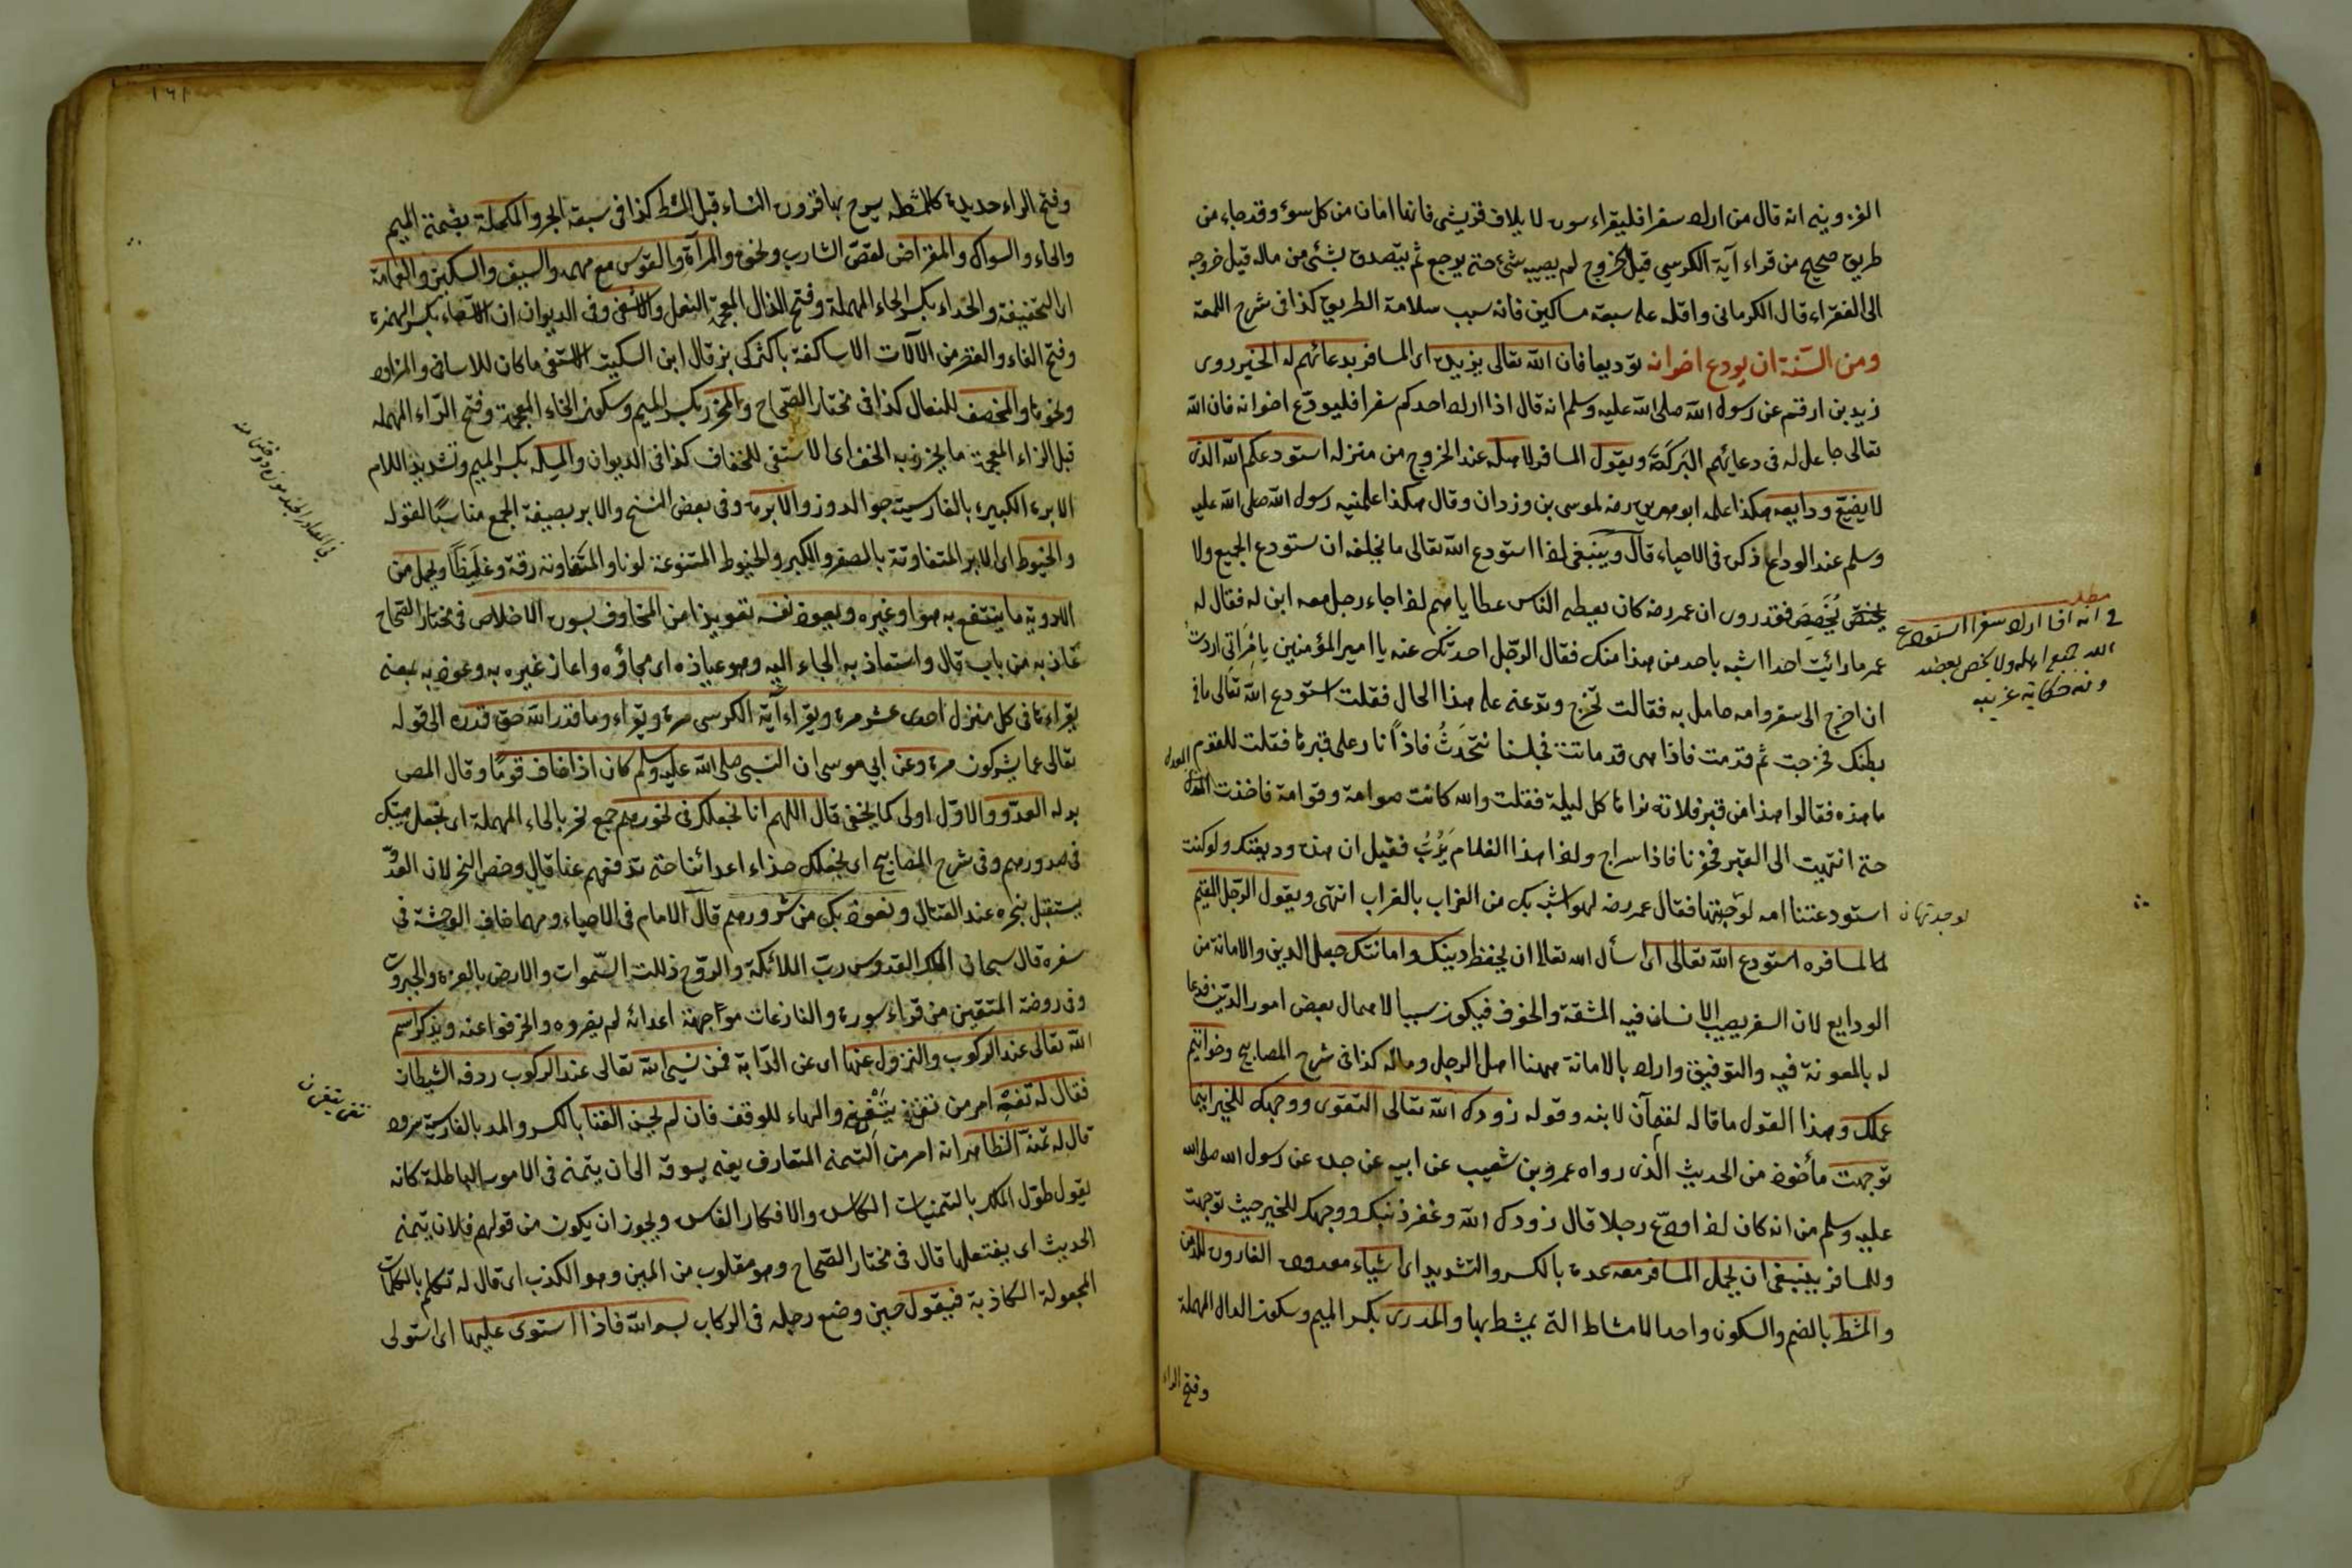 القزوينى انه قال من اراد سفرا فليقراء سورة لايلاف قريش فانها امان من كل سوء وقد جاء من
طريق صحيح من قراء آية الكرسي قبل الخروج لم يصيبه شئ حتى يرجع ثم يتصدق بشئ من ماله قبل خروجه
الى الفقراء قال الكرمانى واقله على سبعة مساكين فانه سبب سلامة الطريق كذا فى شرح اللمعة
ومن السنة ان يودع اخوانه توديعا فان الله تعالى يزيده اى المسافر بدعائهم له الخير روى
زيد بن ارقم عن رسول الله صلى الله عليه وسلم انه قال اذا اراد احدكم سفرا فليودع اخوانه فان الله
تعالى جاعل له فى دعائهم البركة ويقول المسافر لاهله عند الخروج من منزله استودعكم الله الذى
لا يضيع ودايعه هكذا علمه ابو هريرة رضه لموسى بن وردان وقال هكذا علمنيه رسول الله صلى الله عليه
وسلم عند الوداع ذكره فى الاحياء قال وينبغى اذا استودع الله تعالى ما يخلفه ان يستودع الجميع ولا
يخصص فقد روى ان عمر رضه كان يعطى الناس عطاياهم اذا جاء رجل معه ابن له فقال له
عمر ما رائيت احدا اشبه باحد من هذا منك فقال الرجل احدثك عنه يا امير المؤمنين بامر انى اردت
ان اخرج الى سفر وامه حامل به فقالت تخرج وتدعنى على هذا الحال فقلت استودع الله تعالى ما فى
بطنك فخرجت ثم قدمت فاذا هى قد ماتت فجلسنا نتحدث فاذا نار على قبرها فقلت للقوم
ما هذه فقالوا هذا من قبر فلانة نراها كل ليلة فقلت والله كانت صوامة وقوامة فاخذت المعول
حتى انتهيت الى القبر فحفرنا فاذا سراج واذا هذا الغلام يدب فقيل ان هذه وديعتك ولو كنت
استودعتنا امه لوجدتها فقال عمر رضه لهو اشبه بك من الغراب بالغراب انتهى ويقول الرجل المقيم
للمسافر استودع الله تعالى اى اسأل الله تعالى ان يحفظ دينك وامانتك جعل الدين والامانة من
الودايع لان السفر يصيب الانسان فيه المشقة والخوف فيكون سببا لاهمال بعض امور الدين فدعا
له بالمعونة فيه والتوفيق واراد بالامانة ههنا اهل الرجل وماله كذا فى شرح المصابيح وخواتيم
عملك وهذا القول ما قاله لقمان لابنه وقوله زودك الله تعالى التقوى ووجهك للخير اينما
توجهت مأخوذ من الحديث الذى رواه عمرو بن شعيب عن ابيه عن جده عن رسول الله صلى الله
عليه وسلم من انه كان اذا اودع رجلا قال زودك الله وغفر ذنبك ووجهك للخير حيث توجهت
وللمسافر ينبغى ان يحمل المسافر معه عدة بالكسر والتشديد اى اشياء معدودة القارورة للدهن
والمشط بالضم والسكون واحد الامشاط التى يمشط بها والمدرى بكسر الميم وسكون الدال المهملة
وفتح الراء
مطلب
فى انه اذا اراد سفرا استودع
الله جميع اهله ولا يخص بعضه
وفيه حكاية غريبة
لوجدتها ن
١٦١
وفتح الراء حديدة كالمشط يسرح بها قرون النساء قبل المشط كذا فى سبعة ابحر والمكحلة بضمة الميم
والحاء والسواك والمقراض لقص الشارب ونحوه والمرآة والقوس مع سهمه والسيف والسكين والعمامة
اى الخفيفة والحذاء بكسر الحاء المهملة وفتح الذال المعجمة النعل والاشفى وفى الديوان ان الاشفاء بكسر الهمزة
وفتح الفاء والقصر من الآلات الاساكفة باكثركى بز قال ابن السكيت الاشفى ما كان للاساقى والمزاود
ونحوها والمخصف للنعال كذا فى مختار الصحاح والمخرز بكسر الميم وسكون الخاء المعجمة وفتح الراء المهملة
قبل الزاء المعجمة ما يخرز به الخف اى الاشفى للخفاف كذا فى الديوان والمسلة بكسر الميم وتشديد اللام
الابرة الكبيرة بالفارسية جوالدوز والابرة وفى بعض النسخ والابر بصيغة الجمع مناسبا لقوله
والخيوط اى الابر المتفاوتة بالصغر والكبر والخيوط المتنوعة لونا والمتفاوتة رقة وغليظا ويحمل من
الادوية ما ينتفع به هو او غيره ويعوذ نفسه تعويذا من المخاوف بسورة الاخلاص فى مختار الصحاح
عاذ به من باب قال واستعاذ به الجاء اليه وهو عياذه اى ملجاؤه واعاذ غيره به وعوذه به بمعنى
يقراءها فى كل منزل احدى عشر مرة ويقراء آية الكرسى مرة ويقراء وما قدر الله حق قدره الى قوله
تعالى عما يشركون مرة وعن ابي موسى ان النبى صلى الله عليه وسلم كان اذا خاف قوما وقال المص
بدله العدو والاول اولى كما يخفى قال اللهم انا نجعلك فى نحورهم جمع نحر بالحاء المهملة اى نجعل هيبتك
فى صدورهم وفى شرح المصابيح اى نجعلك حذاء اعدائنا حتى تدفعهم عنا قال وخص النحر لان العدو
يستقبل بنحره عند القتال ونعوذ بك من شرورهم قال الامام فى الاحياء ومهما خاف الوحشة فى
سفره قال سبحان الملك القدوس رب الملائكة والروح ذللت السموات والارض بالعزة والجبروت
وفى روضة المتقين من قراء سورة والنازعات مواجهة اعدائه لم يضروه وانحرفوا عنه ويذكر اسم
الله تعالى عند الركوب والنزول عنها اى عن الدابة فمن نسي الله تعالى عند الركوب ردفه الشيطان
فقال له تغنه امر من تغنى يتغنى والهاء للوقف فان لم يحسن الغنا بالكسر والمد بالفارسية سرود
قال له تمنه الظاهر انه امر من التمنى المتعارف يعنى يسوقه الى ان يتمنى فى الامور الباطلة كانه
يقول طول املك بالتمنيات الكاسدة والافكار الفاسدة ويجوز ان يكون من قولهم فلان يتمنى
الحديث اى يفتعلها قال فى مختار الصحاح وهو مقلوب من المين وهو الكذب اى قال له تكلم بالكلمات
المجعولة الكاذبة فيقول حين وضع رجله فى الركاب بسم الله فاذا استوى عليها اى استولى
تغنى يتغنى ن